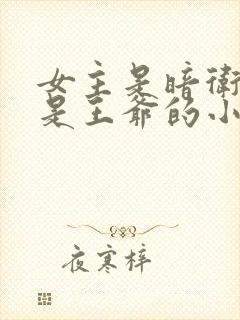 女主是暗衛
是王爺的小
夜寒梓